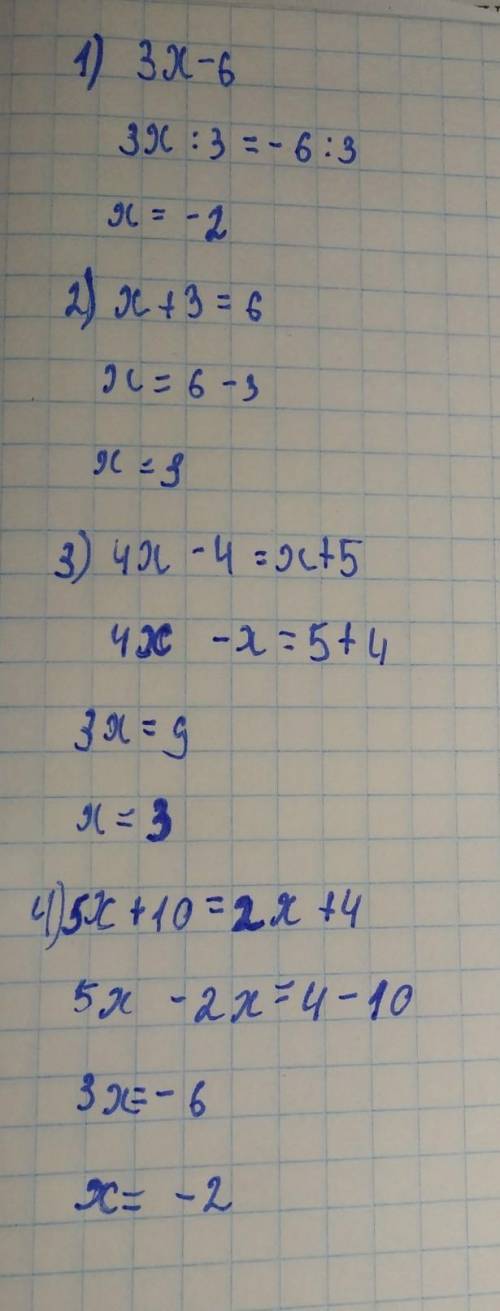 1) 3x-6
3x:3=-6:3
x=-2
2) x+3=6
x=6-3
x=3
3) 4x-4=x+5
4x-x=5+4
3x=9
x=3
4) 5x+10=2x+4
5x-2x=4-10
3x=-6
x=-2